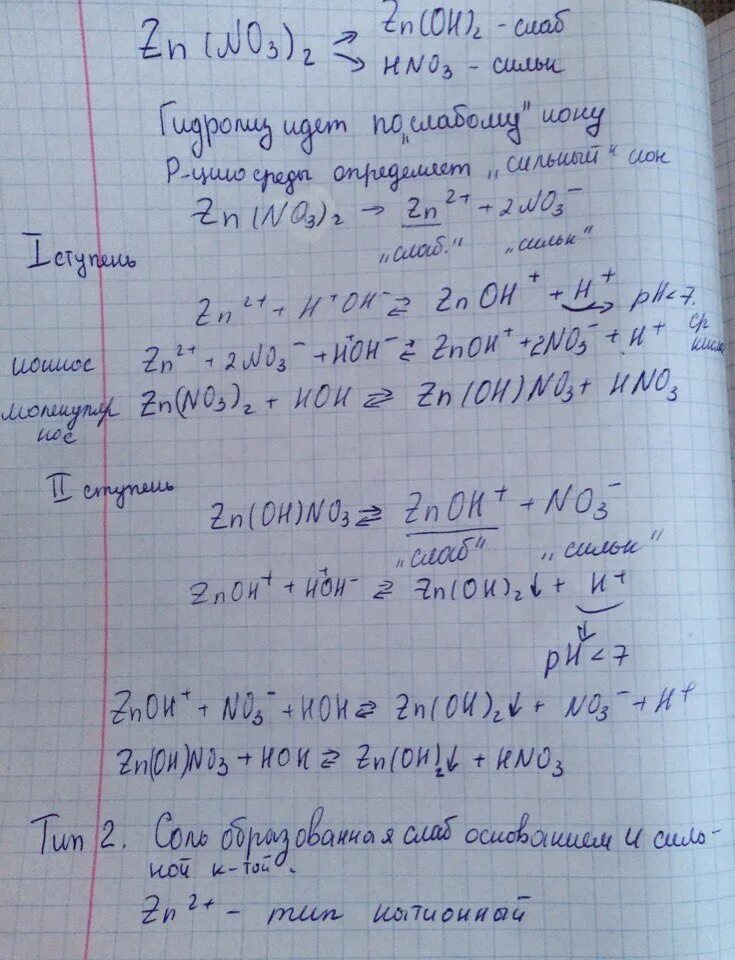 Zn(NO₃)₂ → Zn(OH)₂ - слаб
→ HNO₃ - сильн
Гидролиз идет по „слабому" иону
Р-цию среды определяет „сильный" ион
Zn(NO₃)₂ → Zn²⁺ + 2NO₃⁻
„слаб." „сильн"
I ступень
Zn²⁺ + H⁺OH⁻ ⇄ ZnOH⁺ + H⁺ → pH<7.
ионное Zn²⁺ + 2NO₃⁻ + H⁺OH⁻ ⇄ ZnOH⁺ + 2NO₃⁻ + H⁺ ср
молекуляр Zn(NO₃)₂ + HOH ⇄ Zn(OH)NO₃ + HNO₃
ное
II ступень
Zn(OH)NO₃ ⇄ ZnOH⁺ + NO₃⁻
„слаб" „сильн"
ZnOH⁺ + H⁺OH⁻ ⇄ Zn(OH)₂↓ + H⁺
↓
pH<7
ZnOH⁺ + NO₃⁻ + HOH ⇄ Zn(OH)₂↓ + NO₃⁻ + H⁺
Zn(OH)NO₃ + HOH ⇄ Zn(OH)₂↓ + HNO₃
Тип 2. Соль образованная слаб основанием и силь-
ной к-той.
Zn²⁺ - тип катионный